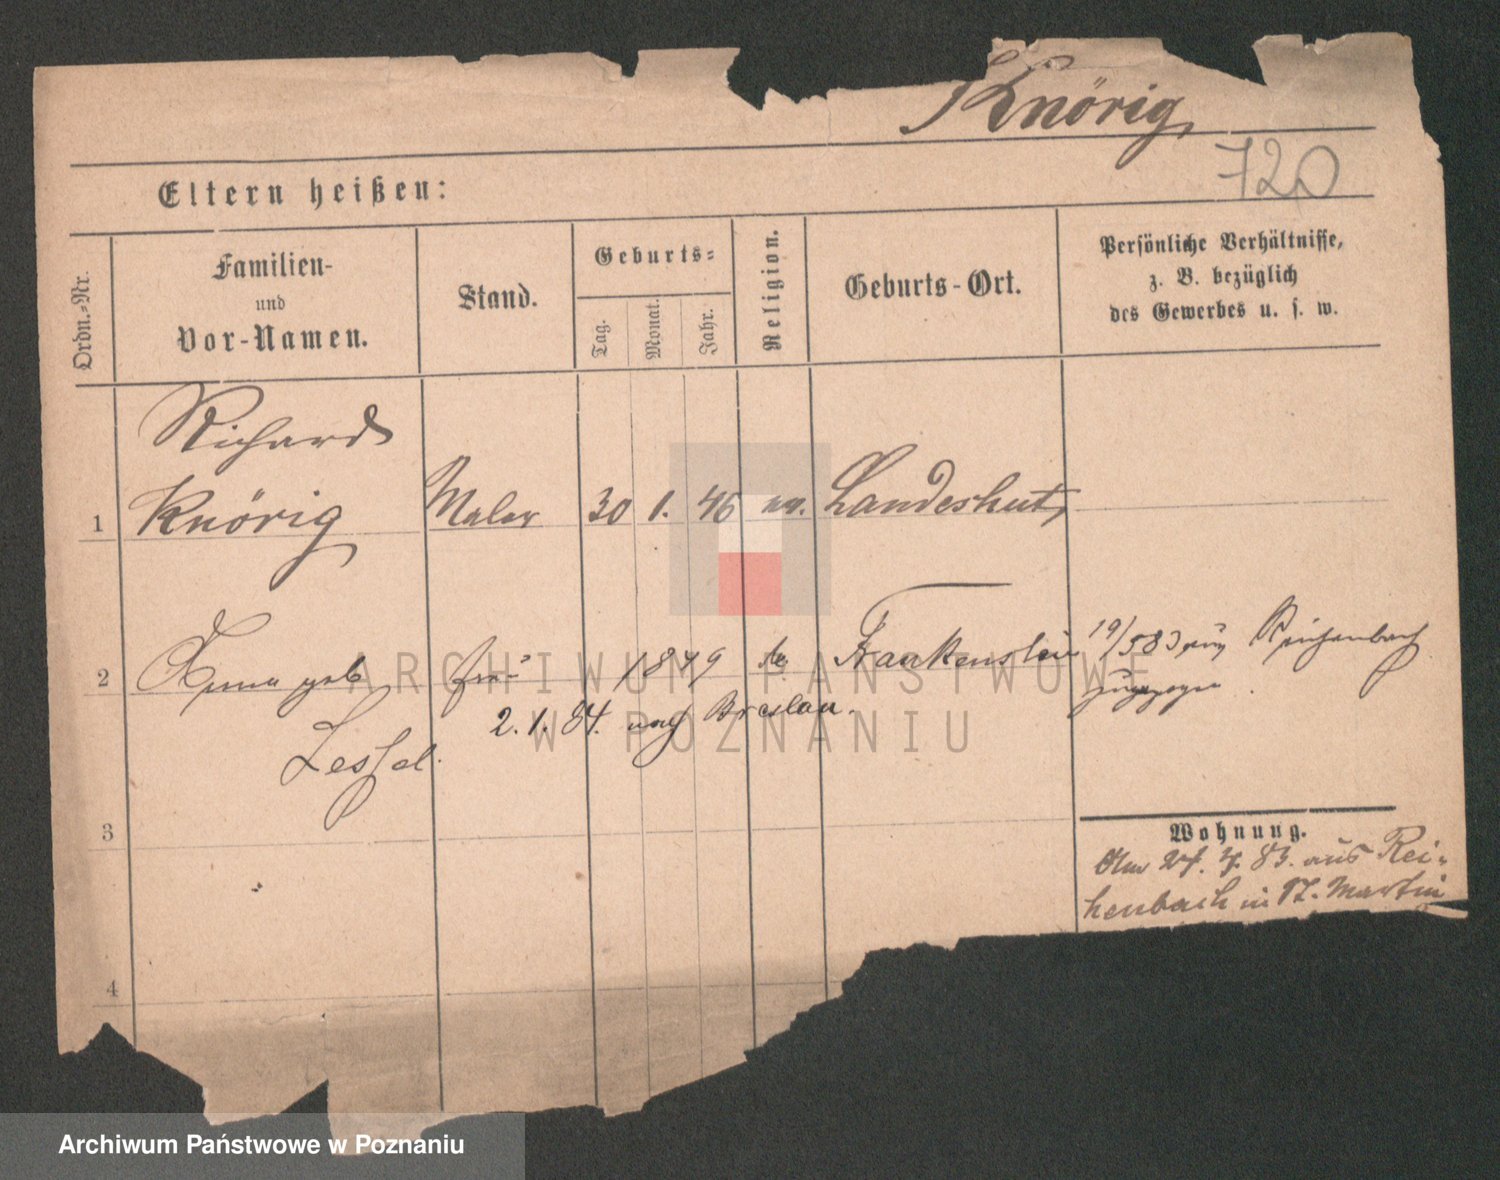 Knörig
720
Eltern heißen:
Ordn.-Nr.
Familien-
und
Vor-Namen.
Stand.
Geburts-
Tag.
Monat.
Jahr.
Religion.
Geburts-Ort.
Persönliche Verhältnisse,
z. B. bezüglich
des Gewerbes u. s. w.
Richard
1 Knörig Maler 30 1. 46 ev. Landeshut
2 Anna geb Frau 1849 Frankenstein 19/5 83 aus Reichenbach
zugezogen
2. 1. 84. nach Breslau.
3
Wohnung.
27. 7. 83. aus Rei-
henbach in St. Martin
4
ARCHIWUM PAŃSTWOWE
W POZNANIU
Archiwum Państwowe w Poznaniu